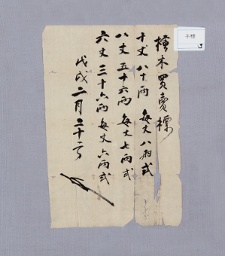 檀木買賣標
十丈 八十兩 每丈 八兩式
八丈 五十六兩 每丈 七兩式
六丈 三十六兩 每丈 六兩式
戊戌 二月 二十一日